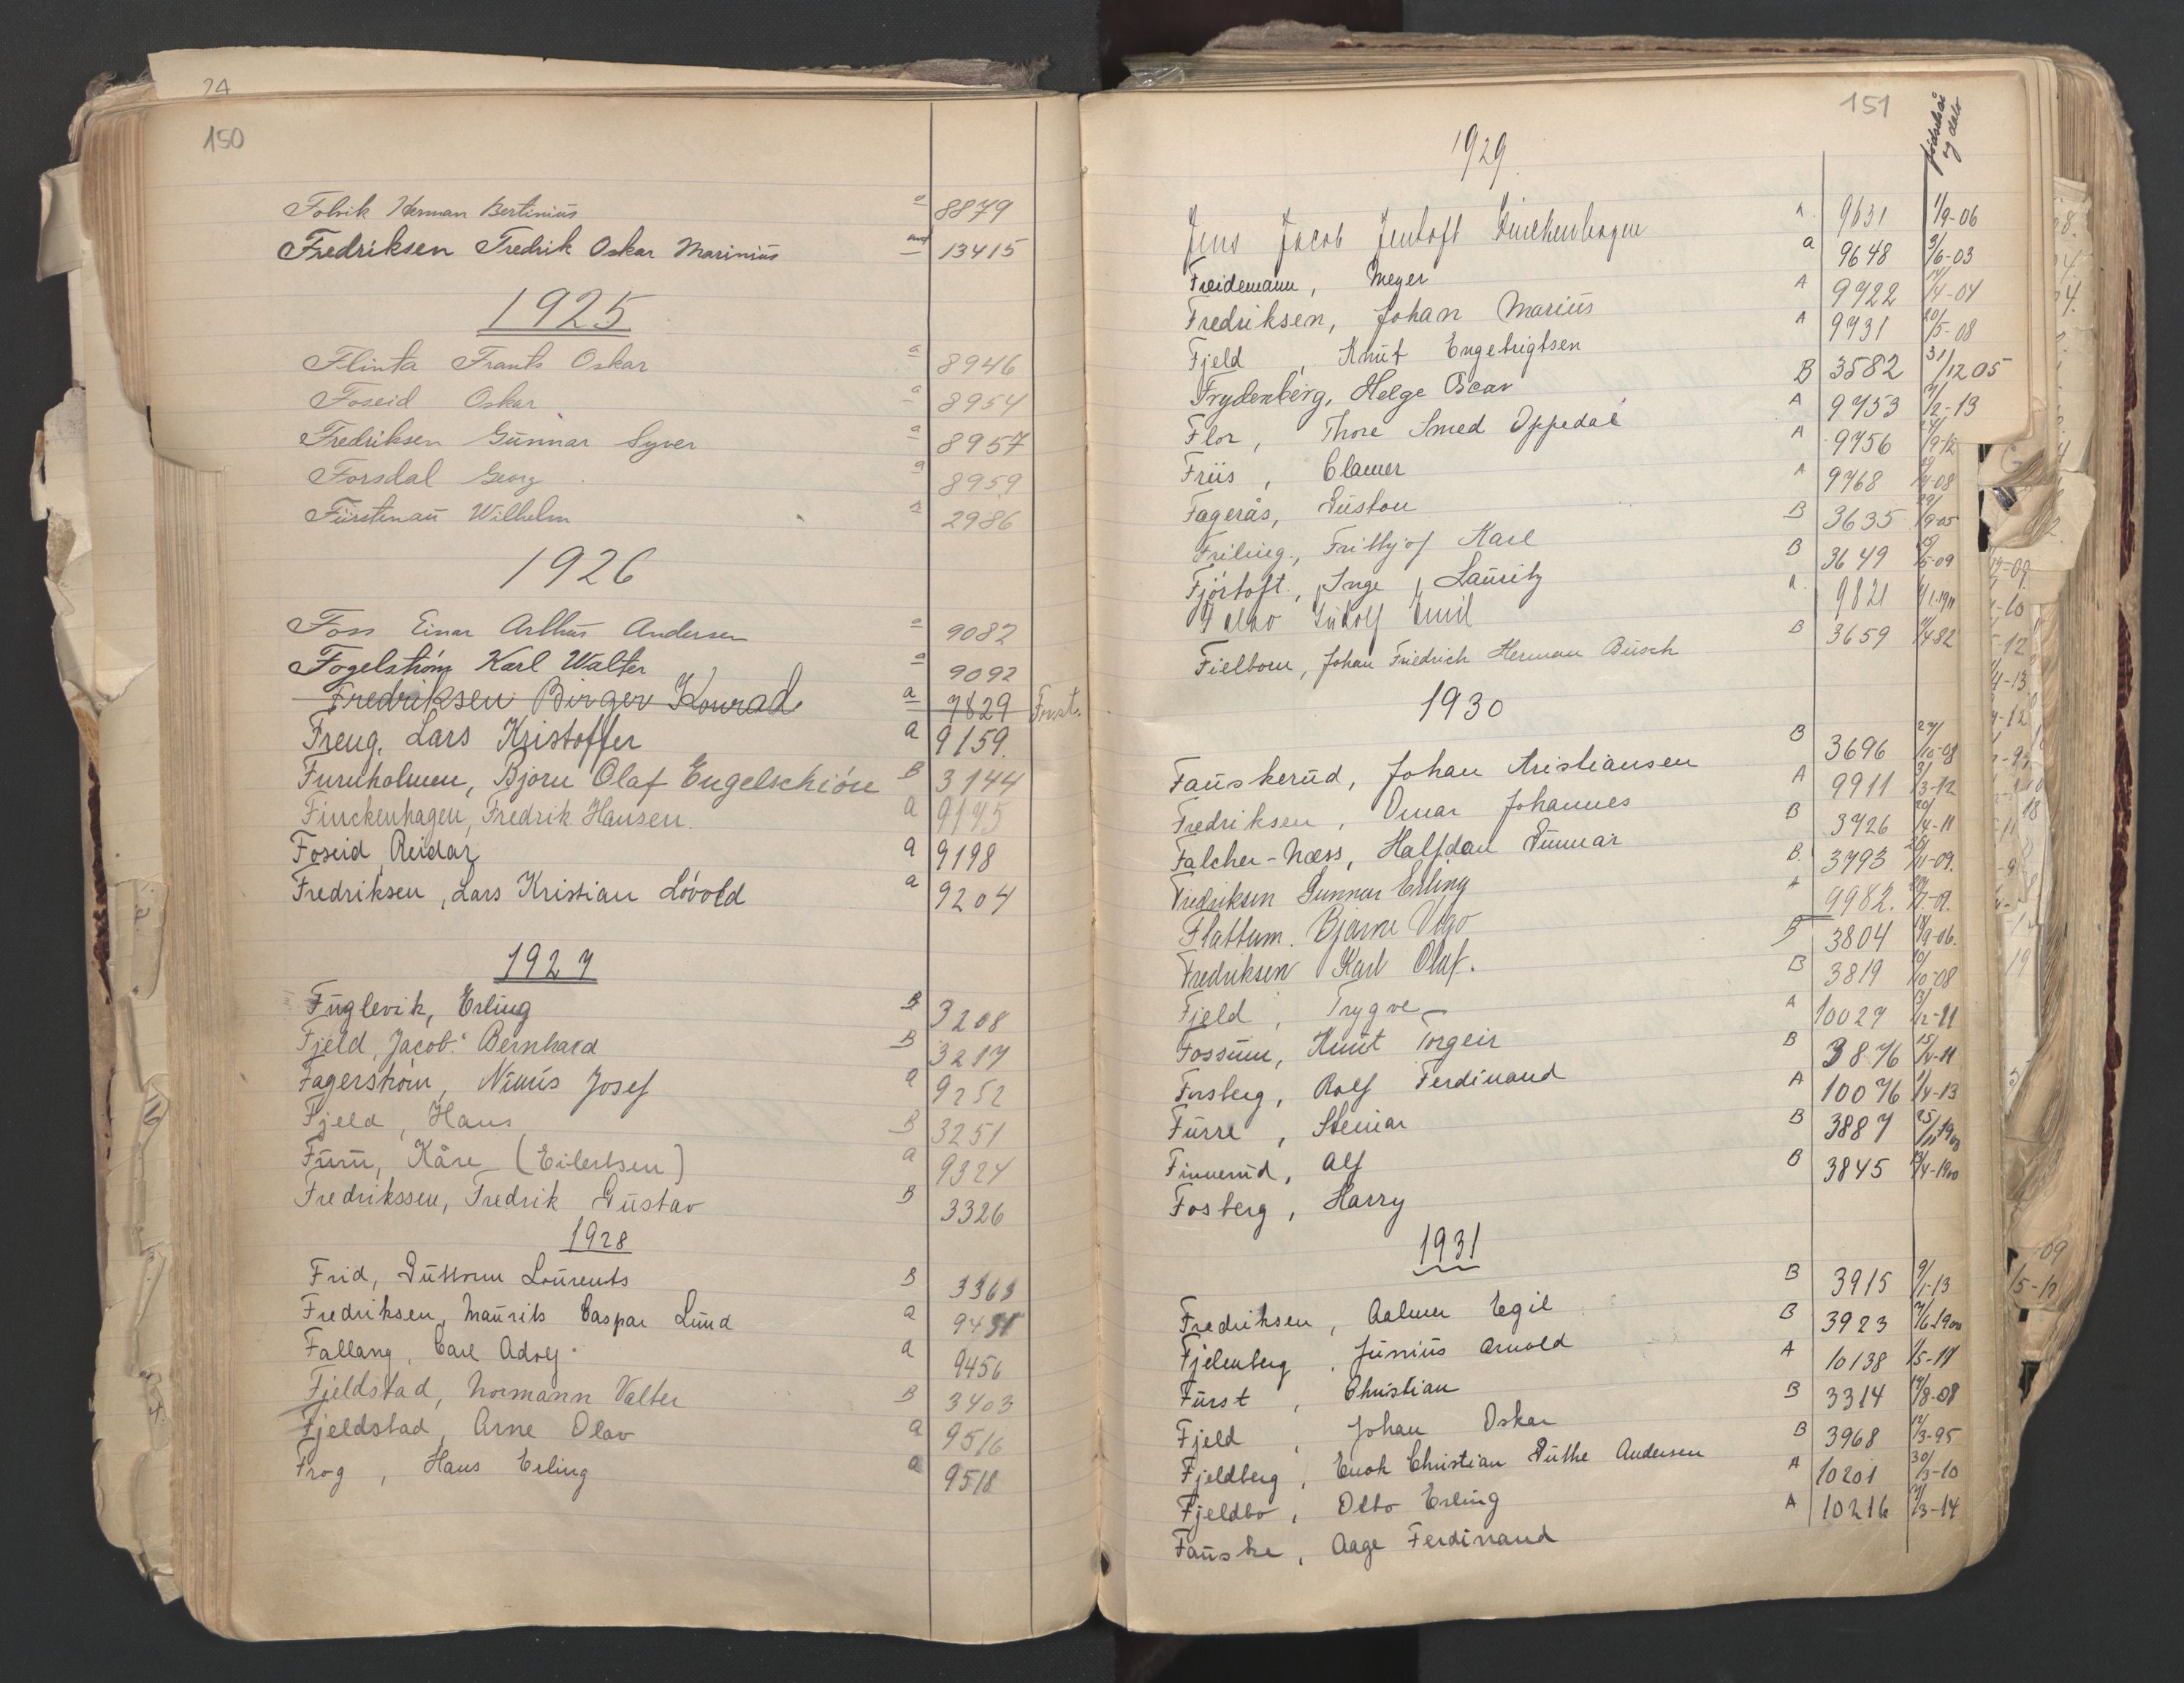 24
150
Folvik Herman Bertinius a 8879
Fredriksen Fredrik Oskar Marinius 13415
1925
Flinta Frants Oskar a 8946
Foseid Oskar a 8954
Fredriksen Gunnar Syver a 8957
Forsdal Georg a 8959
Fürstenau Wilhelm a 2986
1926
Foss Einar Arthur Andersen a 9082
Fogelström Karl Walter a 9092
Fredriksen Birger Konrad a 7829
Freng, Lars Kristoffer a 9159.
Furuholmen, Bjorn Olaf Engelschiön B 3144
Finckenhagen, Fredrik Hansen. a 9195
Foseid, Reidar a 9198
Fredriksen, Lars Kristian Lövold a 9204
1927
Fuglevik, Erling B 3208
Fjeld, Jacob Bernhard B 3217
Fagerström, Nimis Josef a 9252
Fjeld, Hans B 3251
Furu, Kåre (Eilertsen) a 9324
Fredrikssen, Fredrik Gustav B 3326
1928
Frid, Guttorm Laurents B 3363
Fredriksen, Maurits Caspar Lund a
Fallang, Carl Adolf a 9456
Fjeldstad, Normann Valter B 3403
Fjeldstad, Arne Olav a 9516
Frog, Hans Erling a 9518
151
fødselsår og dato
1929
Jens Jacob Jentoft Finckenhagen A. 9631 1/9-06
Freidemann, Meyer a 9648 3/6-03
Fredriksen, Johan Marius A 9722 14/4-04
Fjeld, Knut Engebrigtsen A 9731 20/5-08
Frydenberg, Helge Oscar B 3582 31/12 05
Flor, Thore Smed Oppedal A 9753 /2-13
Friis, Clamer A 9756 /9-12
Fagerås, Gustou A 9768
Friling, Frithjof Karl B 3635 /9-05
Fjörtoft, Inge Lauritz B 3649 /5-09
Ludolf Emil A. 9821
Fielborn, Johan Friedrich Herman Busch B 3659
1930
Fauskerud, Johan Kristiansen B 3696 27/10-08
Fredriksen, Omar Johannes A 9911 3/3-12
Falcher-Næss, Halfdan Gunnar B 3726 20/4-11
Fredriksen Gunnar Erling B. 3793
Flattum. Bjarne Vigo A 9982.
Fredriksen Karl Olaf. B 3804 /9-06.
Fjeld, Trygve B 3819 /10-08
Fossum, Knut Torgeir A 10027 13/12-11
Forsberg, Rolf Ferdinand B 3876
Furre, Steinar A 10076 1/4-13
Finnerud, Alf B 3887
Fosberg, Harry B 3845 /4-1900
1931
Fredriksen, Aalmer Egil B 3915 9/1-13
Fjelenberg, Junius Arnold B 3923 7/6-1900
Fürst, Christian A 10138 /5-11
Fjeld, Johan Oskar B 3314 /8-08
Fjeldberg, Enok Christian Duthe Andersen B 3968 12/3-95
Fjeldbo, Otto Erling A 10201 30/3-10
Fauske, Aage Ferdinand A 10216 /3-14